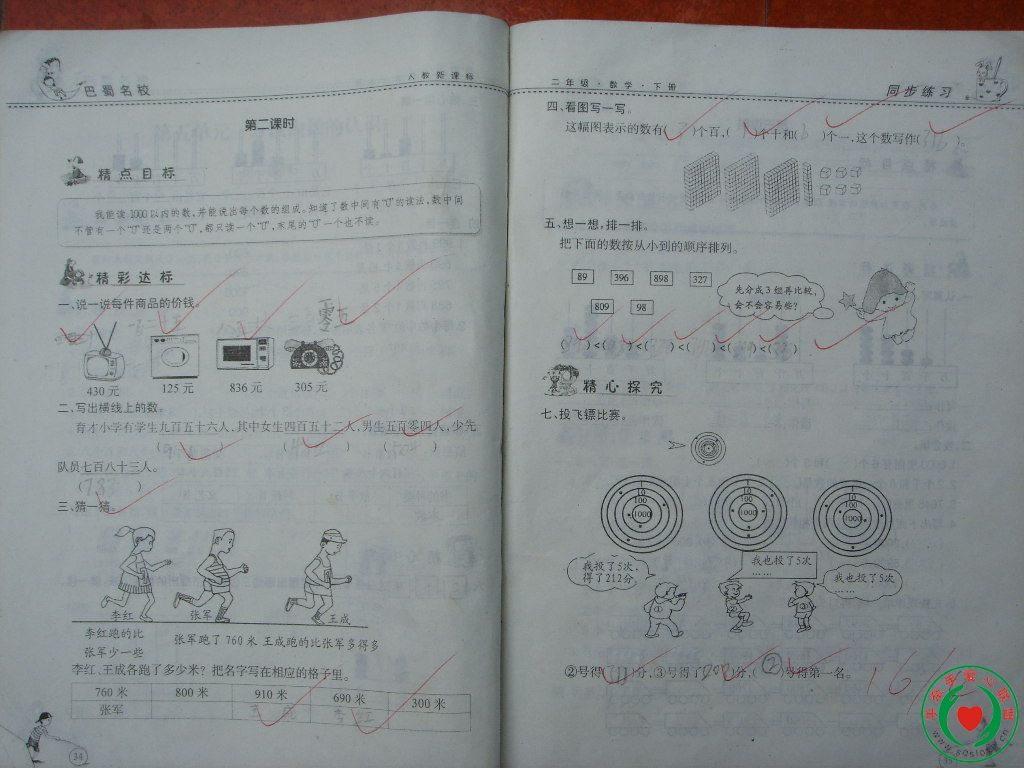 巴蜀名校
人教新课标
第二课时
精点目标
我能读1000以内的数,并能说出每个数的组成。知道了数中间有"0"的读法,数中间
不管有一个"0"还是两个"0",都只读一个"0",末尾的"0"一个也不读。
精彩达标
一、说一说每件商品的价钱。
430元 125元 836元 305元
二、写出横线上的数。
育才小学有学生九百五十六人,其中女生四百五十二人,男生五百零四人,少先
队员七百八十三人。
(783)
三、猜一猜。
李红 张军 王成
李红跑的比
张军少一些
张军跑了760米 王成跑的比张军多得多
李红、王成各跑了多少米? 把名字写在相应的格子里。
760米 800米 910米 690米 300米
张军
34
二年级·数学·下册
同步练习
四、看图写一写。
这幅图表示的数有( )个百,( )个十和(6)个一,这个数写作(316)。
五、想一想,排一排。
把下面的数按从小到的顺序排列。
89 396 898 327
809 98
先分成3组再比较,
会不会容易些?
( )<( )<( )<( )<( )<( )
精心探究
七、投飞镖比赛。
1 10 100 1000
1 10 100 1000
1 10 100 1000
我投了5次,
得了212分
我也投了5次
……
我也投了5次
……
②号得( )分,③号得了( )分,(②)号得第一名。
16
www.sqslo